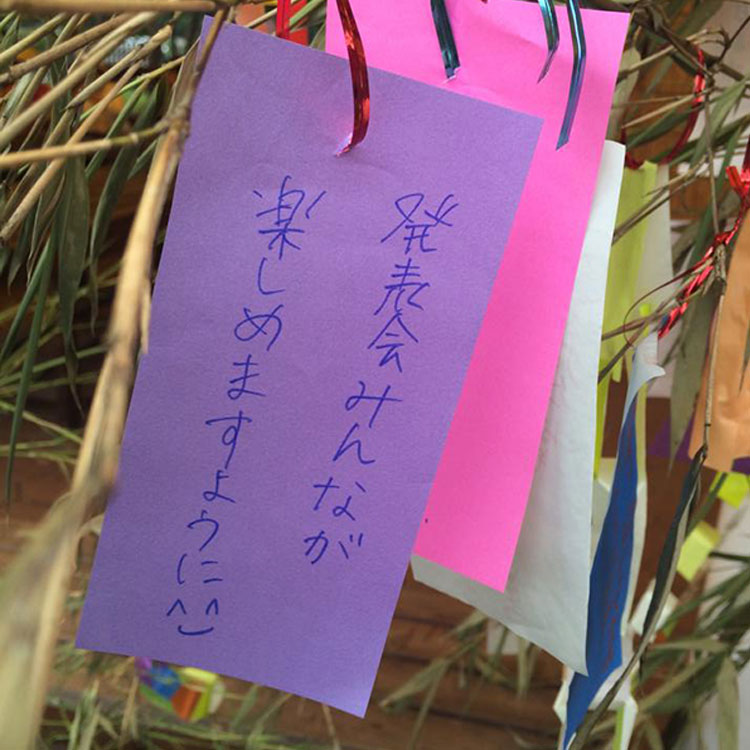 発表会みんなが
楽しめますように^^